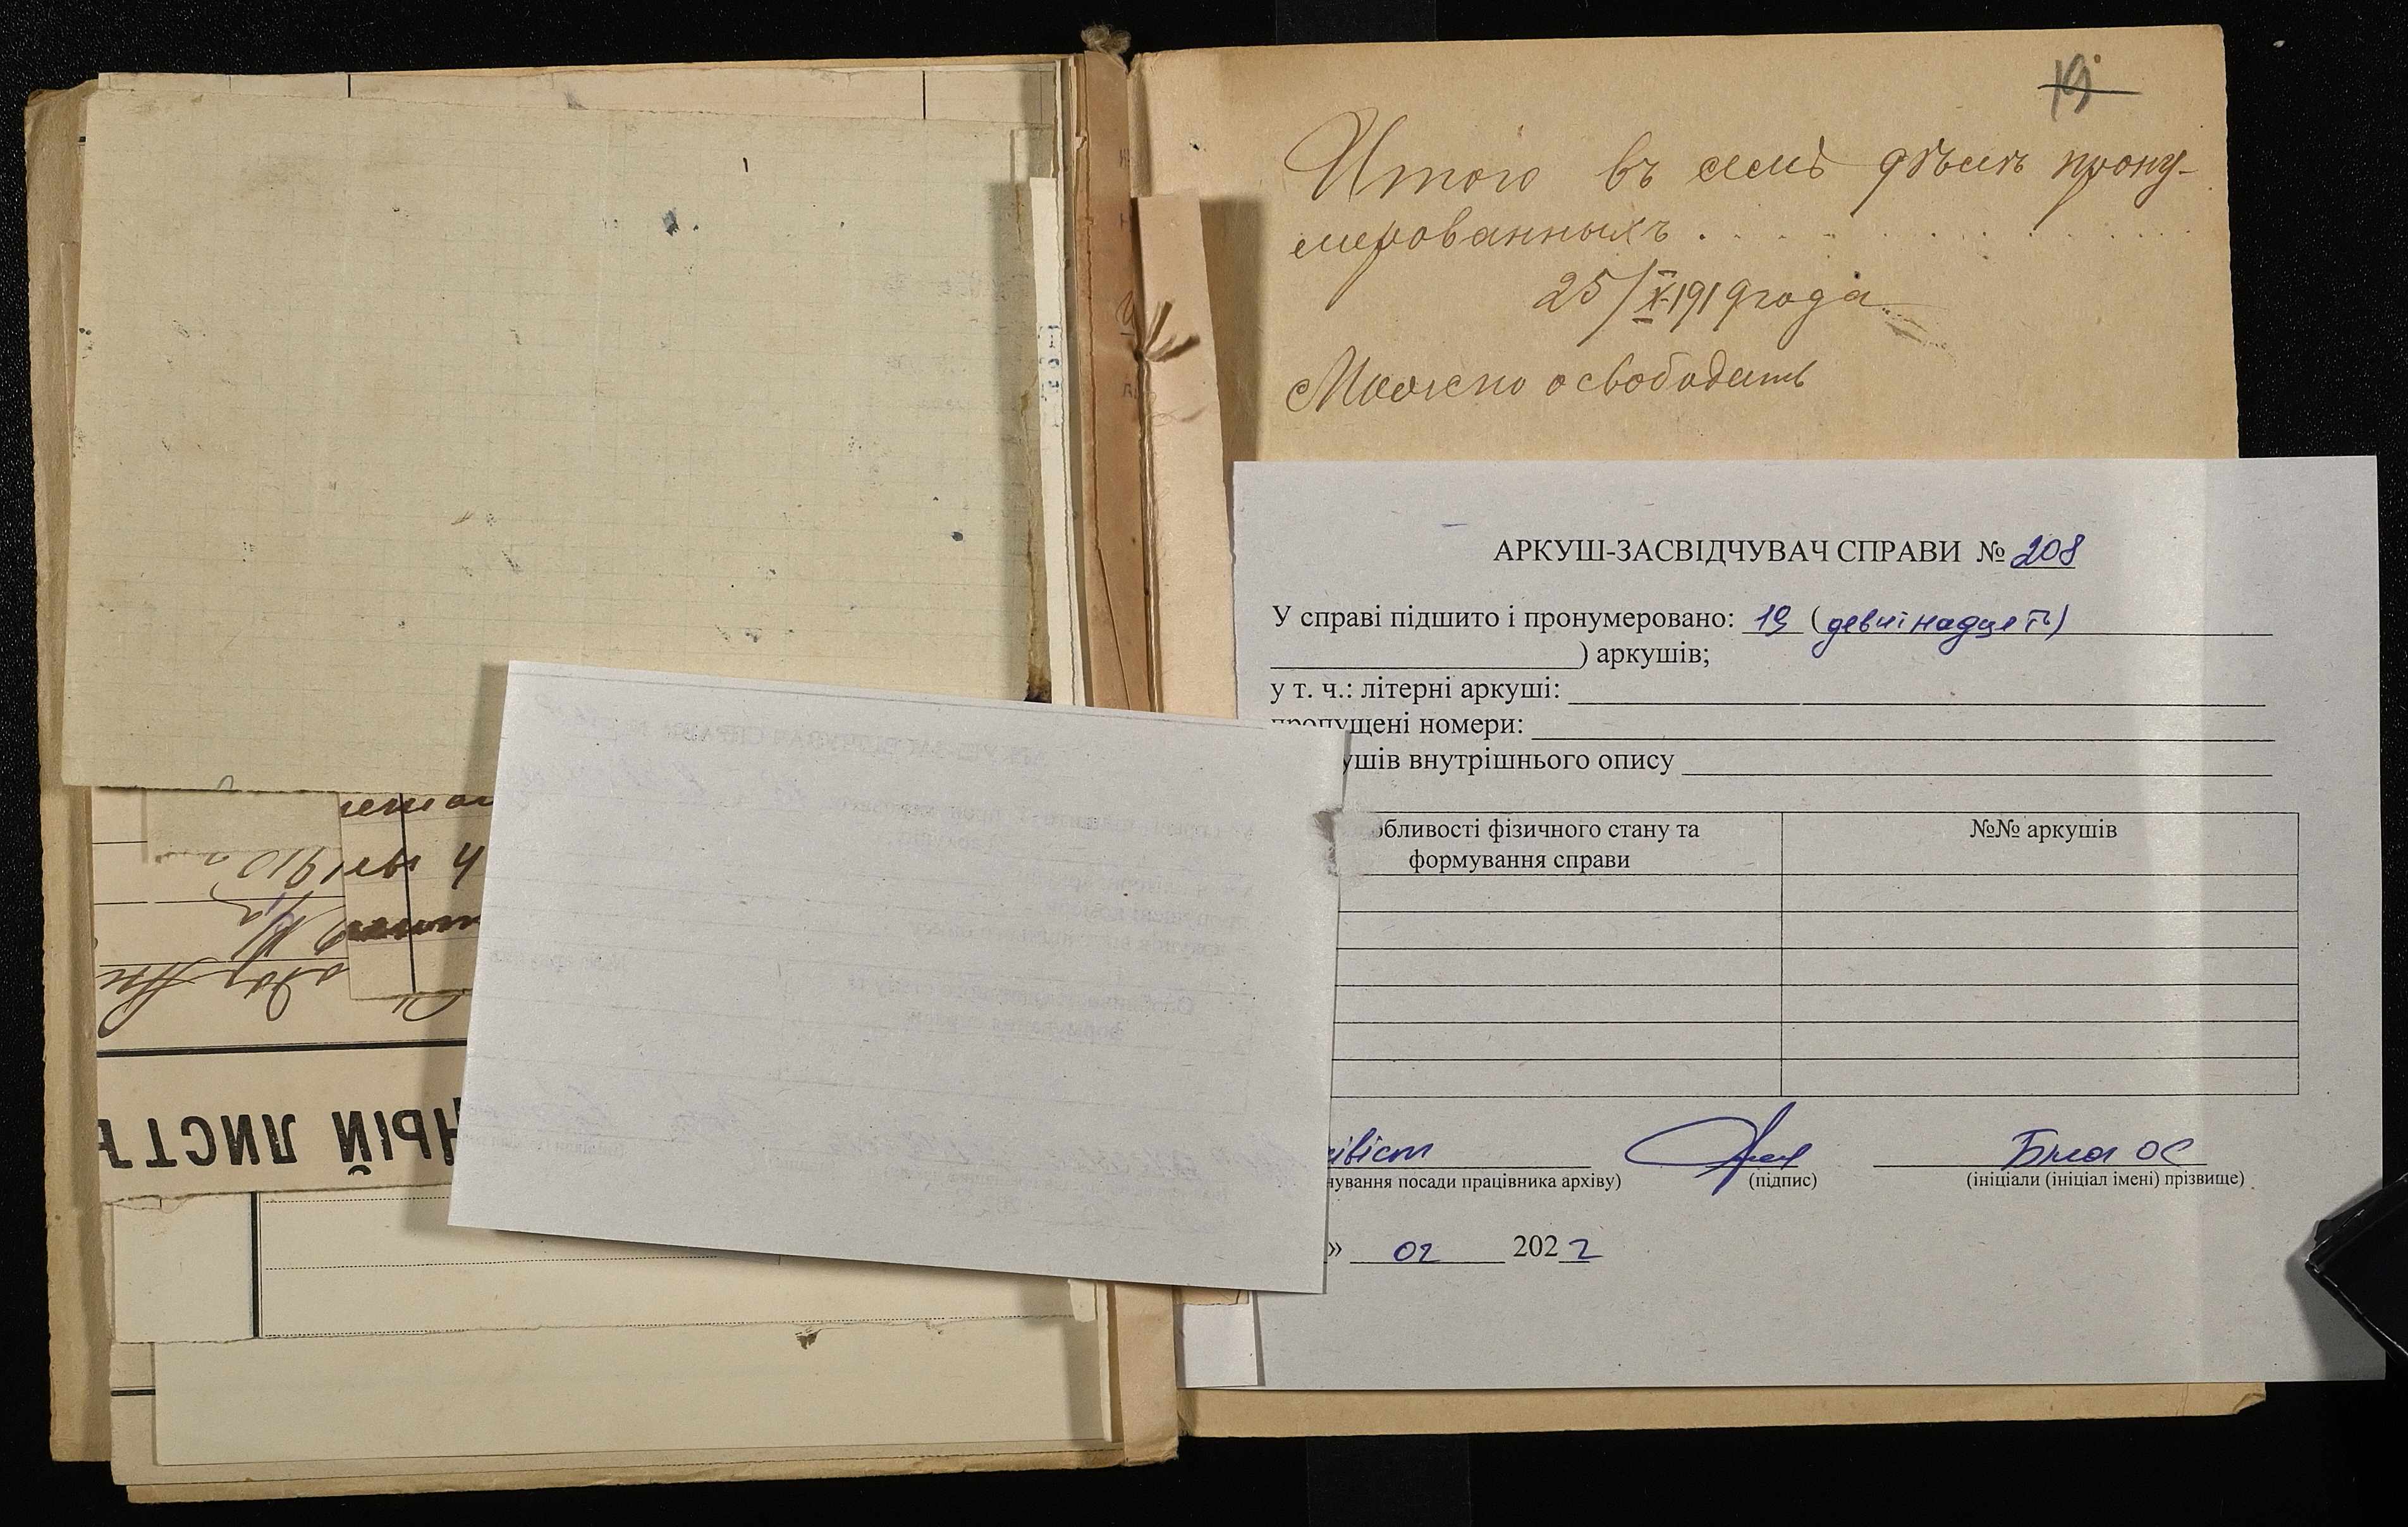 19
Итого въ семъ дѣлѣ прону-
мерованныхъ . . . . . . . . . .
25/X 1919 года
Можно освободить
АРКУШ-ЗАСВІДЧУВАЧ СПРАВИ № 208
У справі підшито і пронумеровано: 19 (девятнадцеть)
) аркушів;
у т. ч.: літерні аркуші:
пропущені номери:
ушів внутрішнього опису
обливості фізичного стану та
формування справи
№№ аркушів
івіст
Біла ОС
нування посади працівника архіву)
(підпис)
(ініціали (ініціал імені) прізвище)
» 02 2022
НЫЙ ЛИСТ